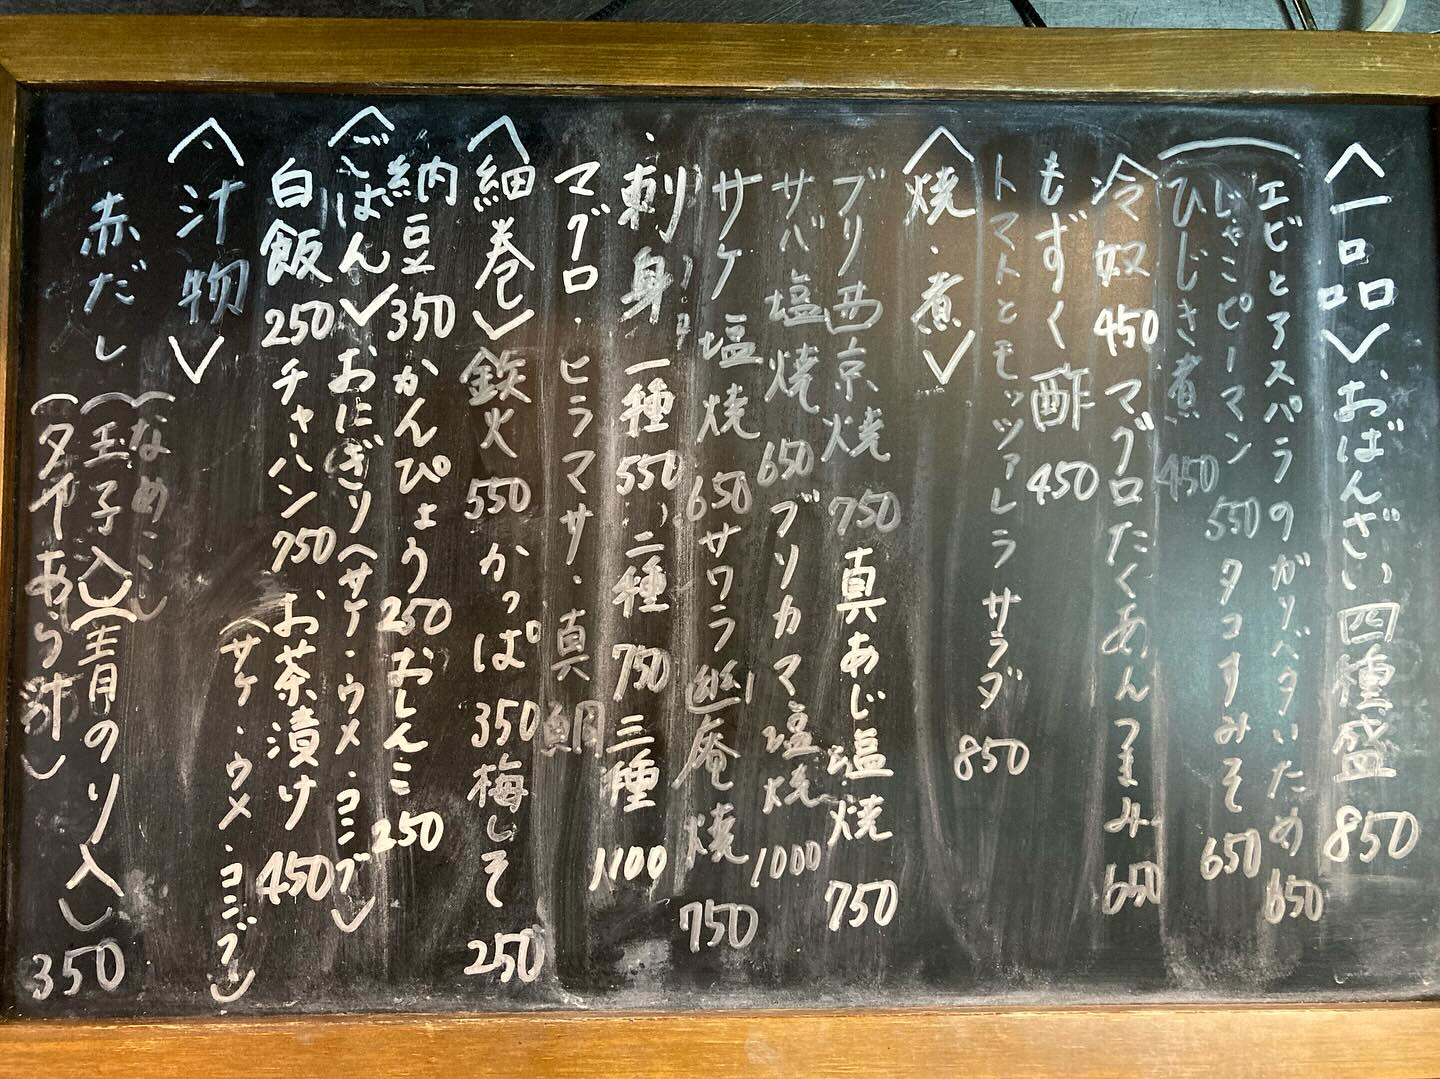 〈一品〉おばんざい四種盛 850
エビとアスパラのガリバタいため 650
じゃこピーマン 550 タコすみそ 650
ひじき煮 450
冷奴 450 マグロたくあんつまみ 650
もずく酢 450
トマトとモッツァレラ サラダ 850
〈焼・煮〉
ブリ西京焼 750 真あじ塩焼 750
サバ塩焼 650 ブリカマ塩焼 1000
サケ塩焼 650 サワラ幽庵焼 750
刺身 一種 550 二種 750 三種 1100
マグロ・ヒラマサ・真鯛
〈細巻〉鉄火 550 かっぱ 350 梅しそ 250
納豆 350 かんぴょう 250 おしんこ 250
〈ごはん〉おにぎり(サケ・ウメ・コンブ)
白飯 250 チャーハン 750 お茶漬け 450
(サケ・ウメ・コンブ)
〈汁物〉
(なめこ)
赤だし(玉子入)(青のり入) 350
(タイあら汁)